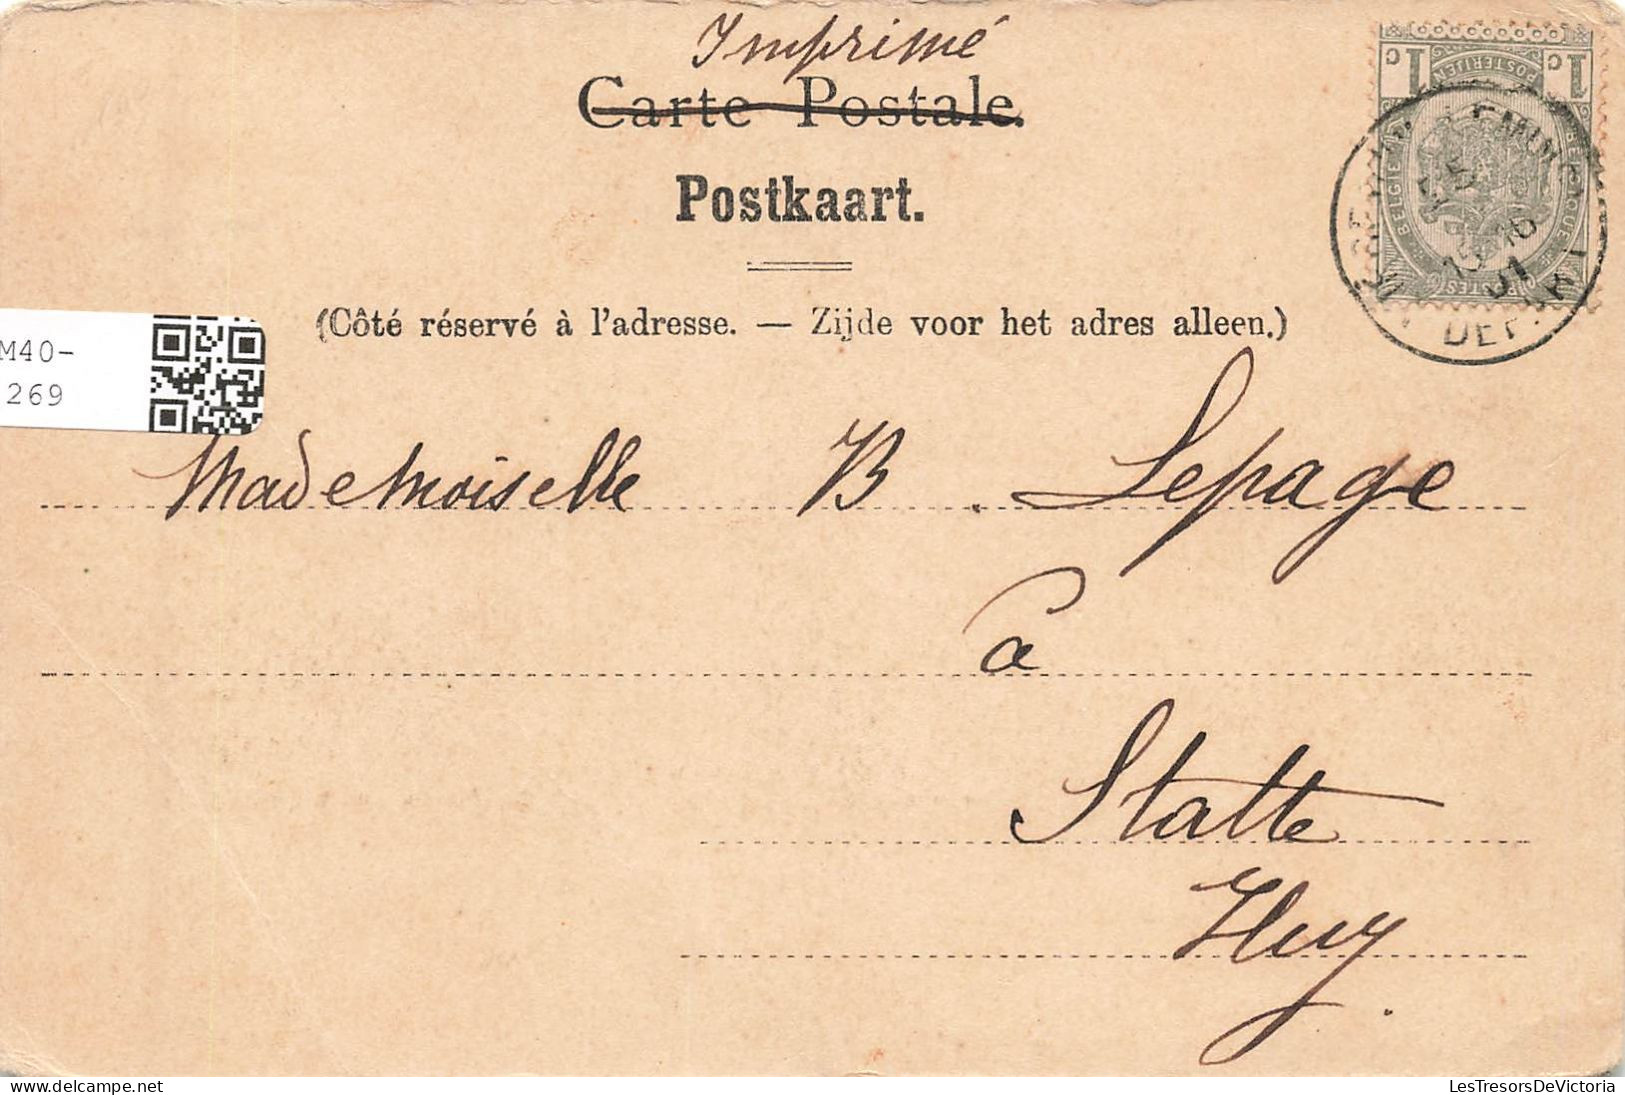 Imprimé
Carte Postale.
Postkaart.
(Côté réservé à l'adresse. — Zijde voor het adres alleen.)
1C C1
POSTERIJEN
BELGIE BELGIQUE
POSTES
DEP
15 16
01
M40-
269
Mademoiselle B. Lepage
à
Statte
Huy
LesTresorsDeVictoria